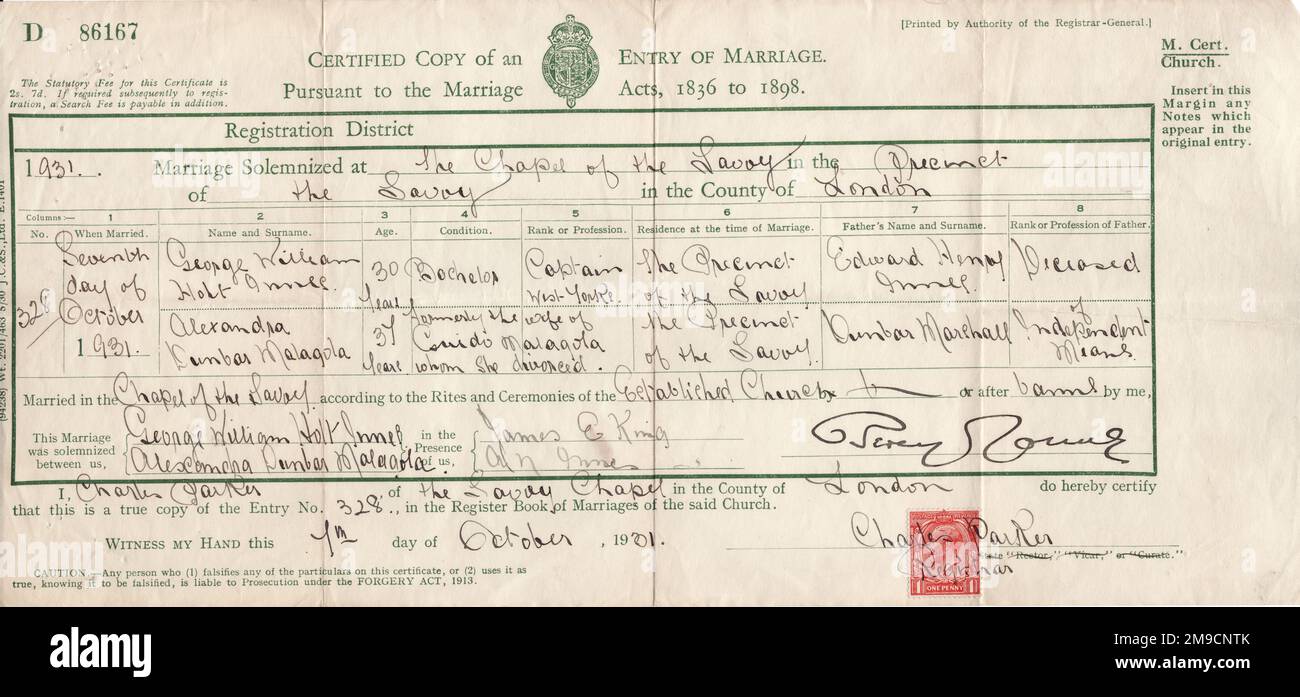 D 86167
[Printed by Authority of the Registrar-General.]
CERTIFIED COPY of an ENTRY OF MARRIAGE.
Pursuant to the Marriage Acts, 1836 to 1898.
M. Cert.
Church.
The Statutory Fee for this Certificate is
2s. 7d. If required subsequently to regis-
tration, a Search Fee is payable in addition.
Insert in this
Margin any
Notes which
appear in the
original entry.
Registration District
1931. Marriage Solemnized at the Chapel of the Savoy in the Precinct
of the Savoy in the County of London
Columns:— 1 2 3 4 5 6 7 8
No. When Married. Name and Surname. Age. Condition. Rank or Profession. Residence at the time of Marriage. Father's Name and Surname. Rank or Profession of Father.
328 Seventh day of October 1931.
George William Holt Innes. 30 years Bachelor Captain West Yorks. the Precinct of the Savoy Edward Henry Innes. Deceased
Alexandra Dunbar Malagola 37 years formerly the wife of Guido Malagola whom she divorced. the Precinct of the Savoy. Dunbar Marshall of Independent Means.
Married in the Chapel of the Savoy according to the Rites and Ceremonies of the Established Church by or after banns by me,
This Marriage was solemnized between us, George William Holt Innes Alexandra Dunbar Malagola. in the Presence of us, James E King A N Innes
I, Charles Parker of the Savoy Chapel in the County of London do hereby certify
that this is a true copy of the Entry No. 328., in the Register Book of Marriages of the said Church.
WITNESS MY HAND this 7th day of October, 1931. Charles Parker
"Rector," "Vicar," or "Curate."
Registrar
ONE PENNY
CAUTION.—Any person who (1) falsifies any of the particulars on this certificate, or (2) uses it as
true, knowing it to be falsified, is liable to Prosecution under the FORGERY ACT, 1913.
(94238) Wt. 2201/463 5/30 J.C.&S., Ltd. E.1401
alamy
Image ID: 2M9CNTK
www.alamy.com